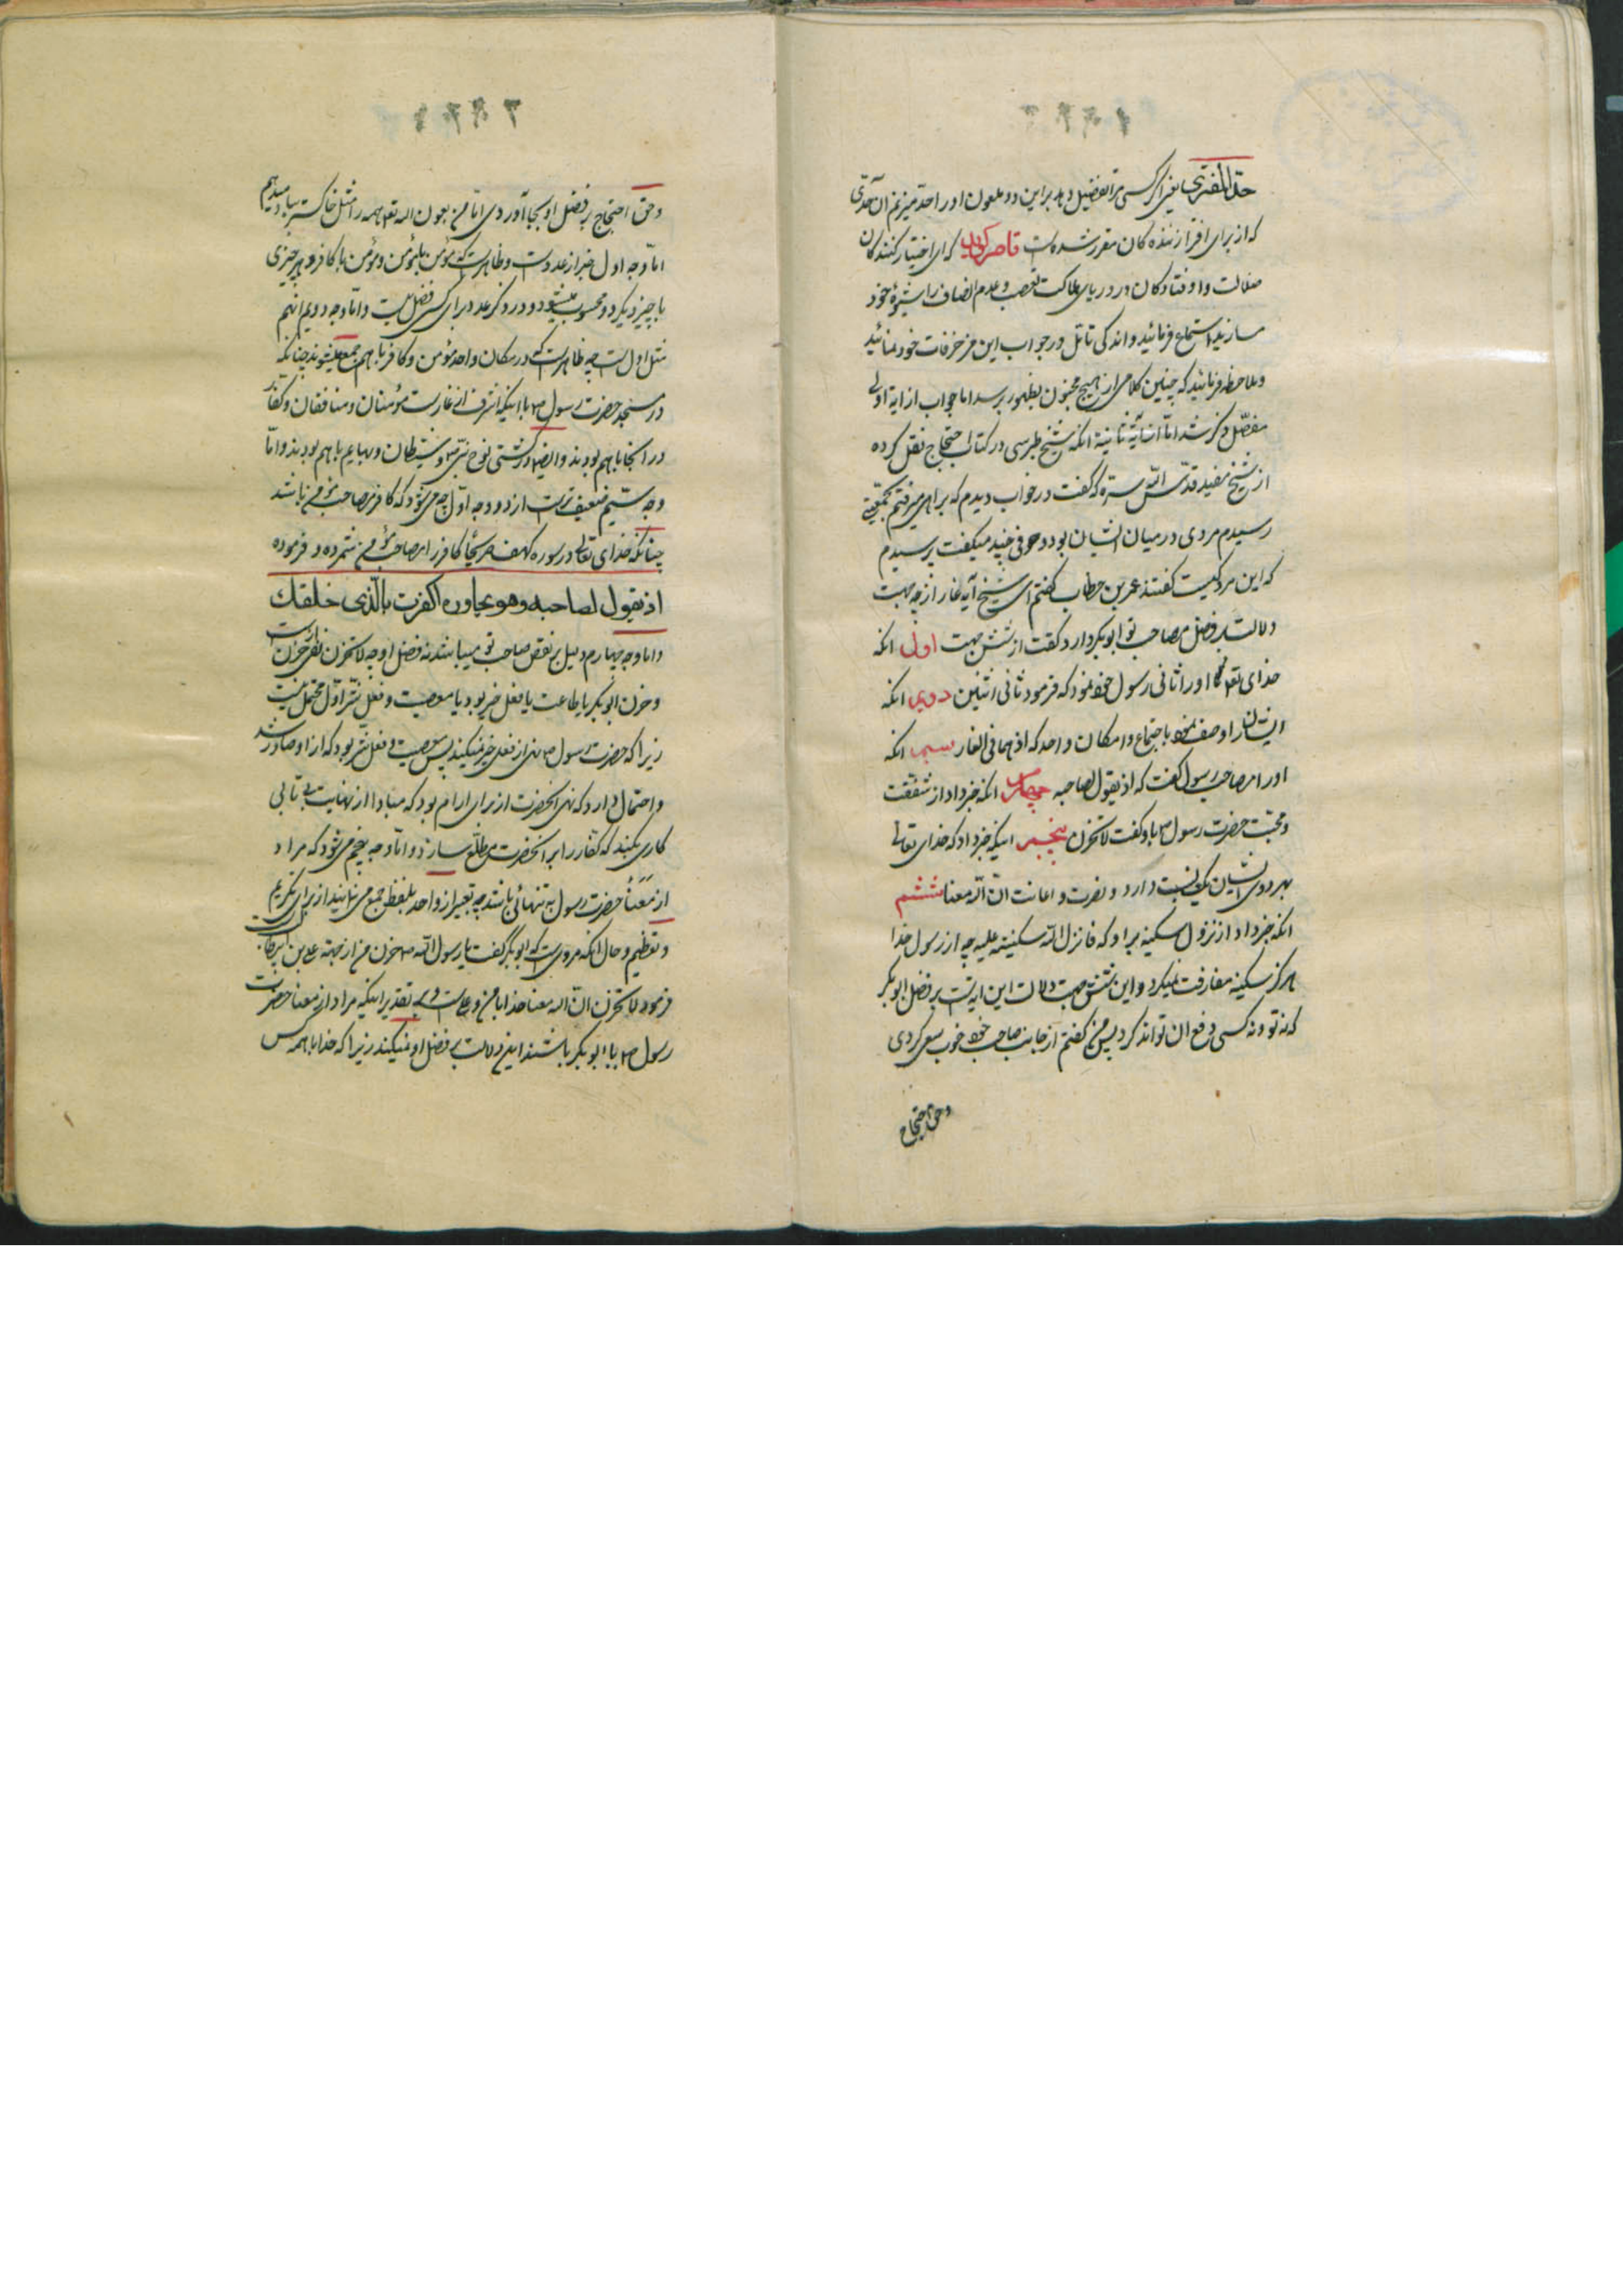 حدّ المفتری یعنی اگر کسی مرا تفضیل دهد براین دو ملعون اورا حد میزنم آن حدّی
که از برای افترا زننده کان مقرر شده است قاصر گوید که ای اختیار کنندکان
ضلالت وا وفتادکان در دریای هلاکت تعصب وعدم انصاف را شیوهٔ خود
سازید استماع فرمائید و اندکی تامّل در جواب این مزخرفات خود نمائید
وملاحظه فرمائید که چنین کلامی از هیچ مجنون بظهور برسد اما جواب از ایة اولی
مفصّل ذکر شد امّا از آیة ثانیة انکه شیخ طبرسی در کتاب احتجاج نقل کرده
از شیخ مفید قدّس اللّه سرّه که گفت در خواب دیدم که براهی میرفتم بجمعیّتی
رسیدم مردی در میان ایشان بود وحرفی چند میکفت پرسیدم
که این مرد کیست کفتند عمر بن خطاب کفتم ای شیخ آیه غار از چه جهت
دلالت بر فضل مصاحب تو ابوبکر دارد کفت از شش جهت اول انکه
خدای تعالی اورا ثانی رسول خود نمود که فرمود ثانی اثنین دویم انکه
ایشان را وصف نمود باجتماع در مکان واحد که اذ هما فی الغار سیم انکه
اورا مصاحب رسول کفت که اذ یقول لصاحبه چهارم انکه خبر داد از شفقت
ومحبّت حضرت رسول ص باو کفت لا تحزن پنجم اینکه خبر داد که خدای تعالی
بهر دوی ایشان یک نسبت دارد و نصرت و اعانت انّ اللّه معنا ششم
انکه خبر داد از نزول سکینه بر او که فانزل اللّه سکینته علیه چه از رسول خدا
هرگز سکینه مفارقت نمیکرد واین شش جهت دلالت این ایه است بر فضل ابوبکر
که نه تو ونه کسی دفع ان تواند کرد پس من کفتم از جانب صاحب خود خوب سعی کردی
وحق احتجاج
وحق احتجاج بر فضل او بجا آوردی امّا من بعون اللّه تعالی همه را مثل خاکستر بباد میدهم
امّا وجه اول خبر از عدد است وظاهر است که مؤمن با مؤمن ومؤمن با کافر وهر چیزی
با چیز دیکر دو محسوب میشود و در ذکر عدد برای کسی فضل نیست وامّا وجه دویم انهم
مثل اول است چه ظاهر است که در مکان واحد مؤمن وکافر با هم جمع میشوند چنانکه
در مسجد حضرت رسول ص با اینکه اشرف از غار است مؤمنان ومنافقان وکفّار
در انجا با هم بودند وایضا در کشتی نوح نبیّ ص وشیطان وبهایم با هم بودند وامّا
وجه سیّم ضعیف تر است از دو وجه اوّل چه میشود که کافر مصاحب مؤمن باشد
چنانکه خدای تعالی در سوره کهف صریحاً کافر را مصاحب مؤمن شمرده و فرموده
اذ یقول لصاحبه وهو یحاوره اکفرت بالّذی خلقك
واما وجه چهارم دلیل بر نقص صاحب تو میباشد نه فضل او چه لا تحزن نهی از حزن است
وحزن ابوبکر یا طاعت یا فعل خیر بود یا معصیت وفعل شرّ اوّل محتمل نیست
زیرا که حضرت رسول ص نهی از فعل خیر نمیکند پس معصیت و فعل شر بود که از او صادر شد
واحتمال دارد که نهی آنحضرت از برای ارام بود که مبادا از نهایت بی تابی
کاری بکند که کفّار را بر آنحضرت مطلّع سازد وامّا وجه پنجم می شود که مراد
از معنا حضرت رسول به تنهائی باشد چه تعبیر از واحد بلفظ جمع می نمایند از برای تکریم
وتعظیم وحال انکه مروی است که ابوبکر گفت یا رسول اللّه ص حزن من از جهة علی بن ابیطالب است
فرمود لا تحزن انّ اللّه معنا خدا با من و علی است و بر تقدیر اینکه مراد از معنا حضرت
رسول ص با ابوبکر باشند این دلالت بر فضل او نمیکند زیرا که خدا با همه کس